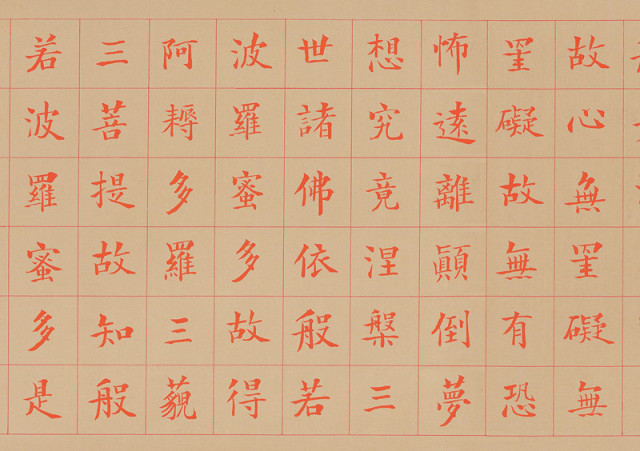 故心無罣礙無
罣礙故無有恐
怖遠離顛倒夢
想究竟涅槃三
世諸佛依般若
波羅蜜多故得
阿耨多羅三藐
三菩提故知般
若波羅蜜多是